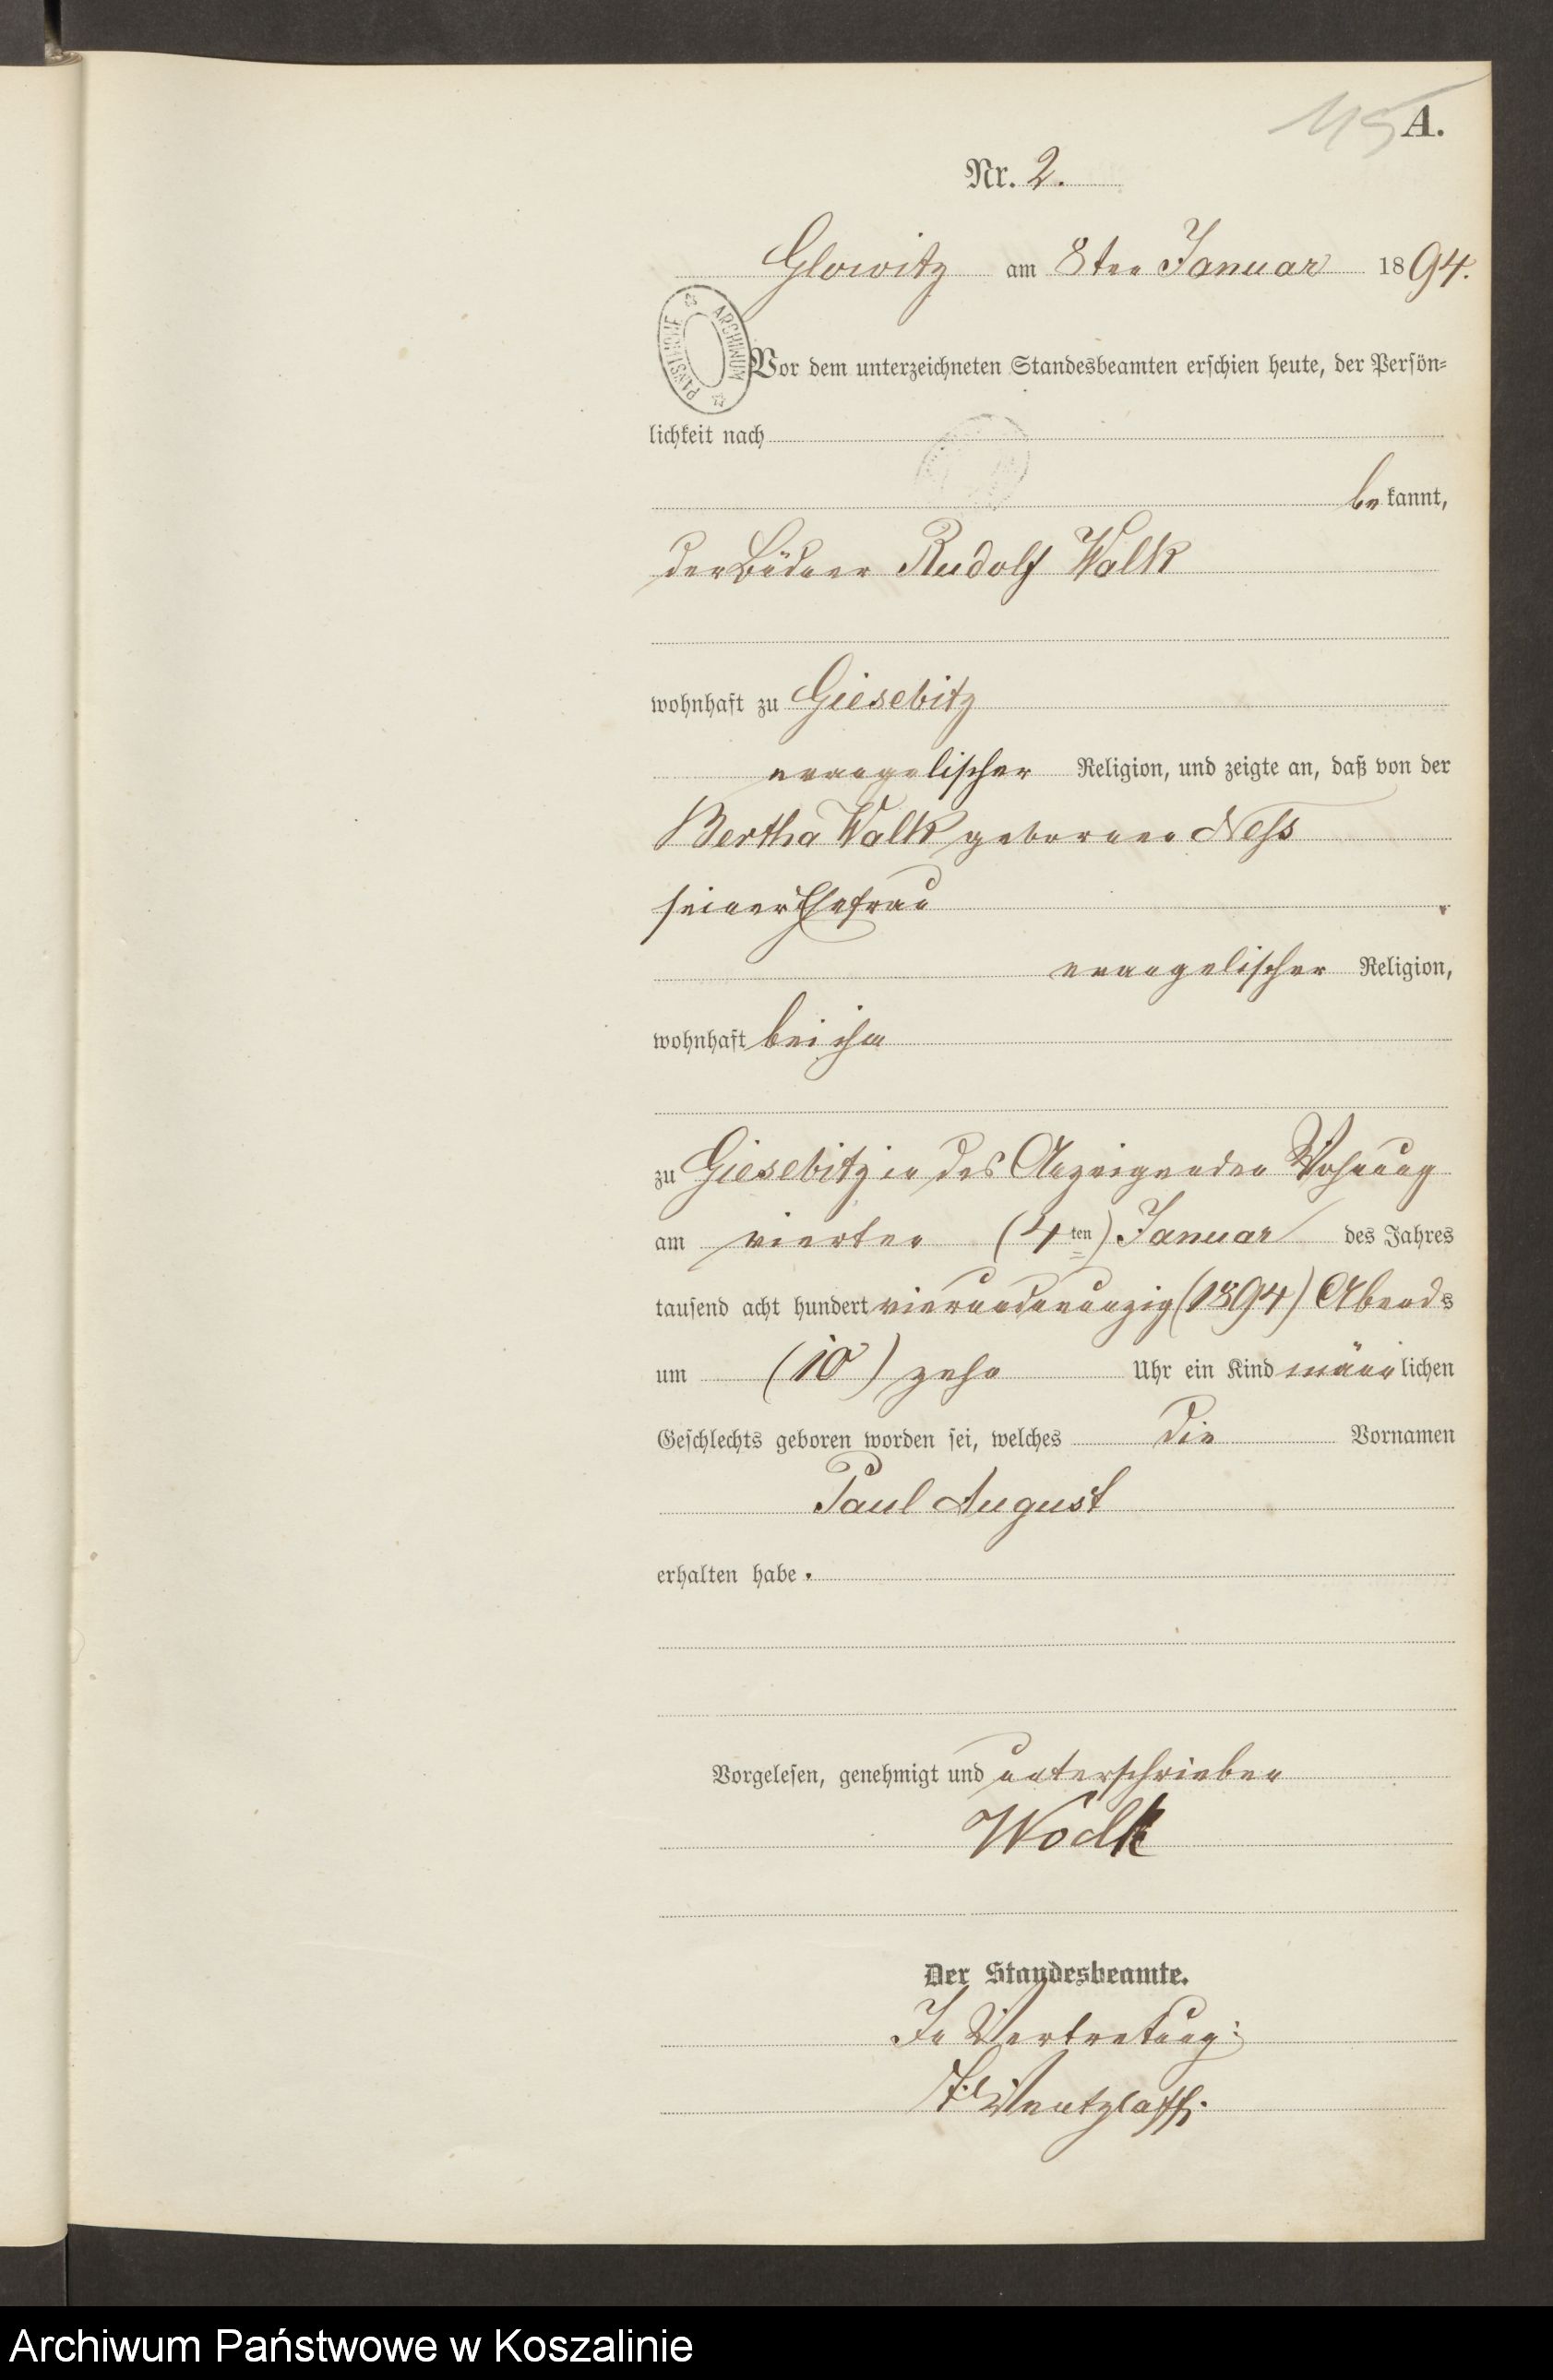 115 A.
Nr. 2.
Glowitz am 8ten Januar 1894.
PAŃSTWOWE ARCHIWUM
Vor dem unterzeichneten Standesbeamten erschien heute, der Persön-
lichkeit nach
bekannt,
der Büdner Rudolf Walk
wohnhaft zu Giesebitz
evangelischer Religion, und zeigte an, daß von der
Bertha Walk geborenen Ness
seiner Ehefrau
evangelischer Religion,
wohnhaft bei ihm
zu Giesebitz in des Anzeigenden Wohnung
am vierten (4ten) Januar des Jahres
tausend acht hundert vierundneunzig (1894) Abends
um (10) zehn Uhr ein Kind männlichen
Geschlechts geboren worden sei, welches die Vornamen
Paul August
erhalten habe.
Vorgelesen, genehmigt und unterschrieben
Walk
Der Standesbeamte.
In Vertretung:
Wentzlaff.
Archiwum Państwowe w Koszalinie